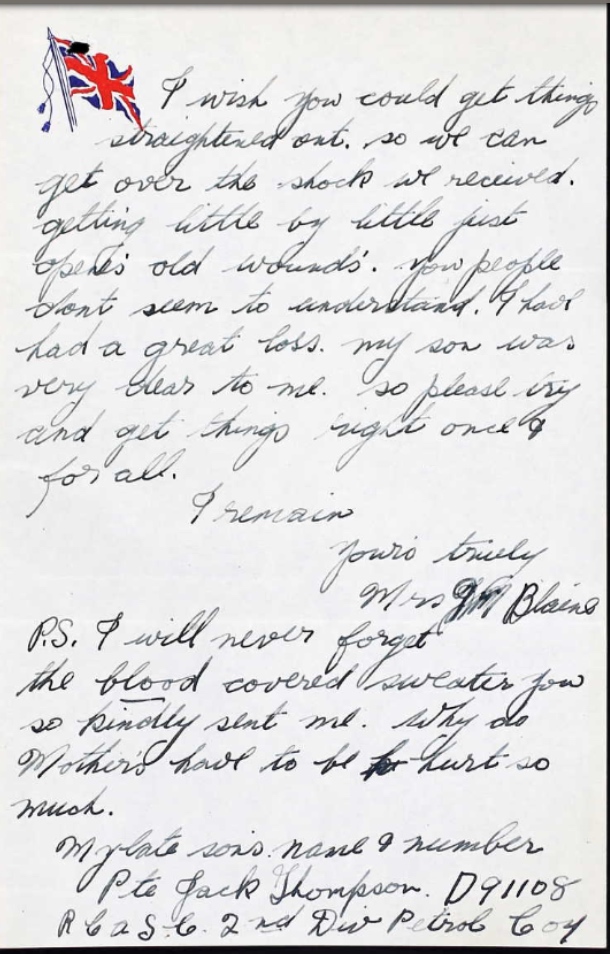 I wish you could get things
straightened out. so we can
get over the shock we received.
getting little by little just
opens old wounds. you people
dont seem to understand. I have
had a great loss. my son was
very dear to me. so please try
and get things right once &
for all.
I remain
Yours truely
Mrs Blaine
P.S. I will never forget
the blood covered sweater you
so kindly sent me. Why do
Mothers have to be hurt so
much.
My late sons name & number
Pte Jack Thompson. D91108
R C a S C. 2nd Div Petrol Coy